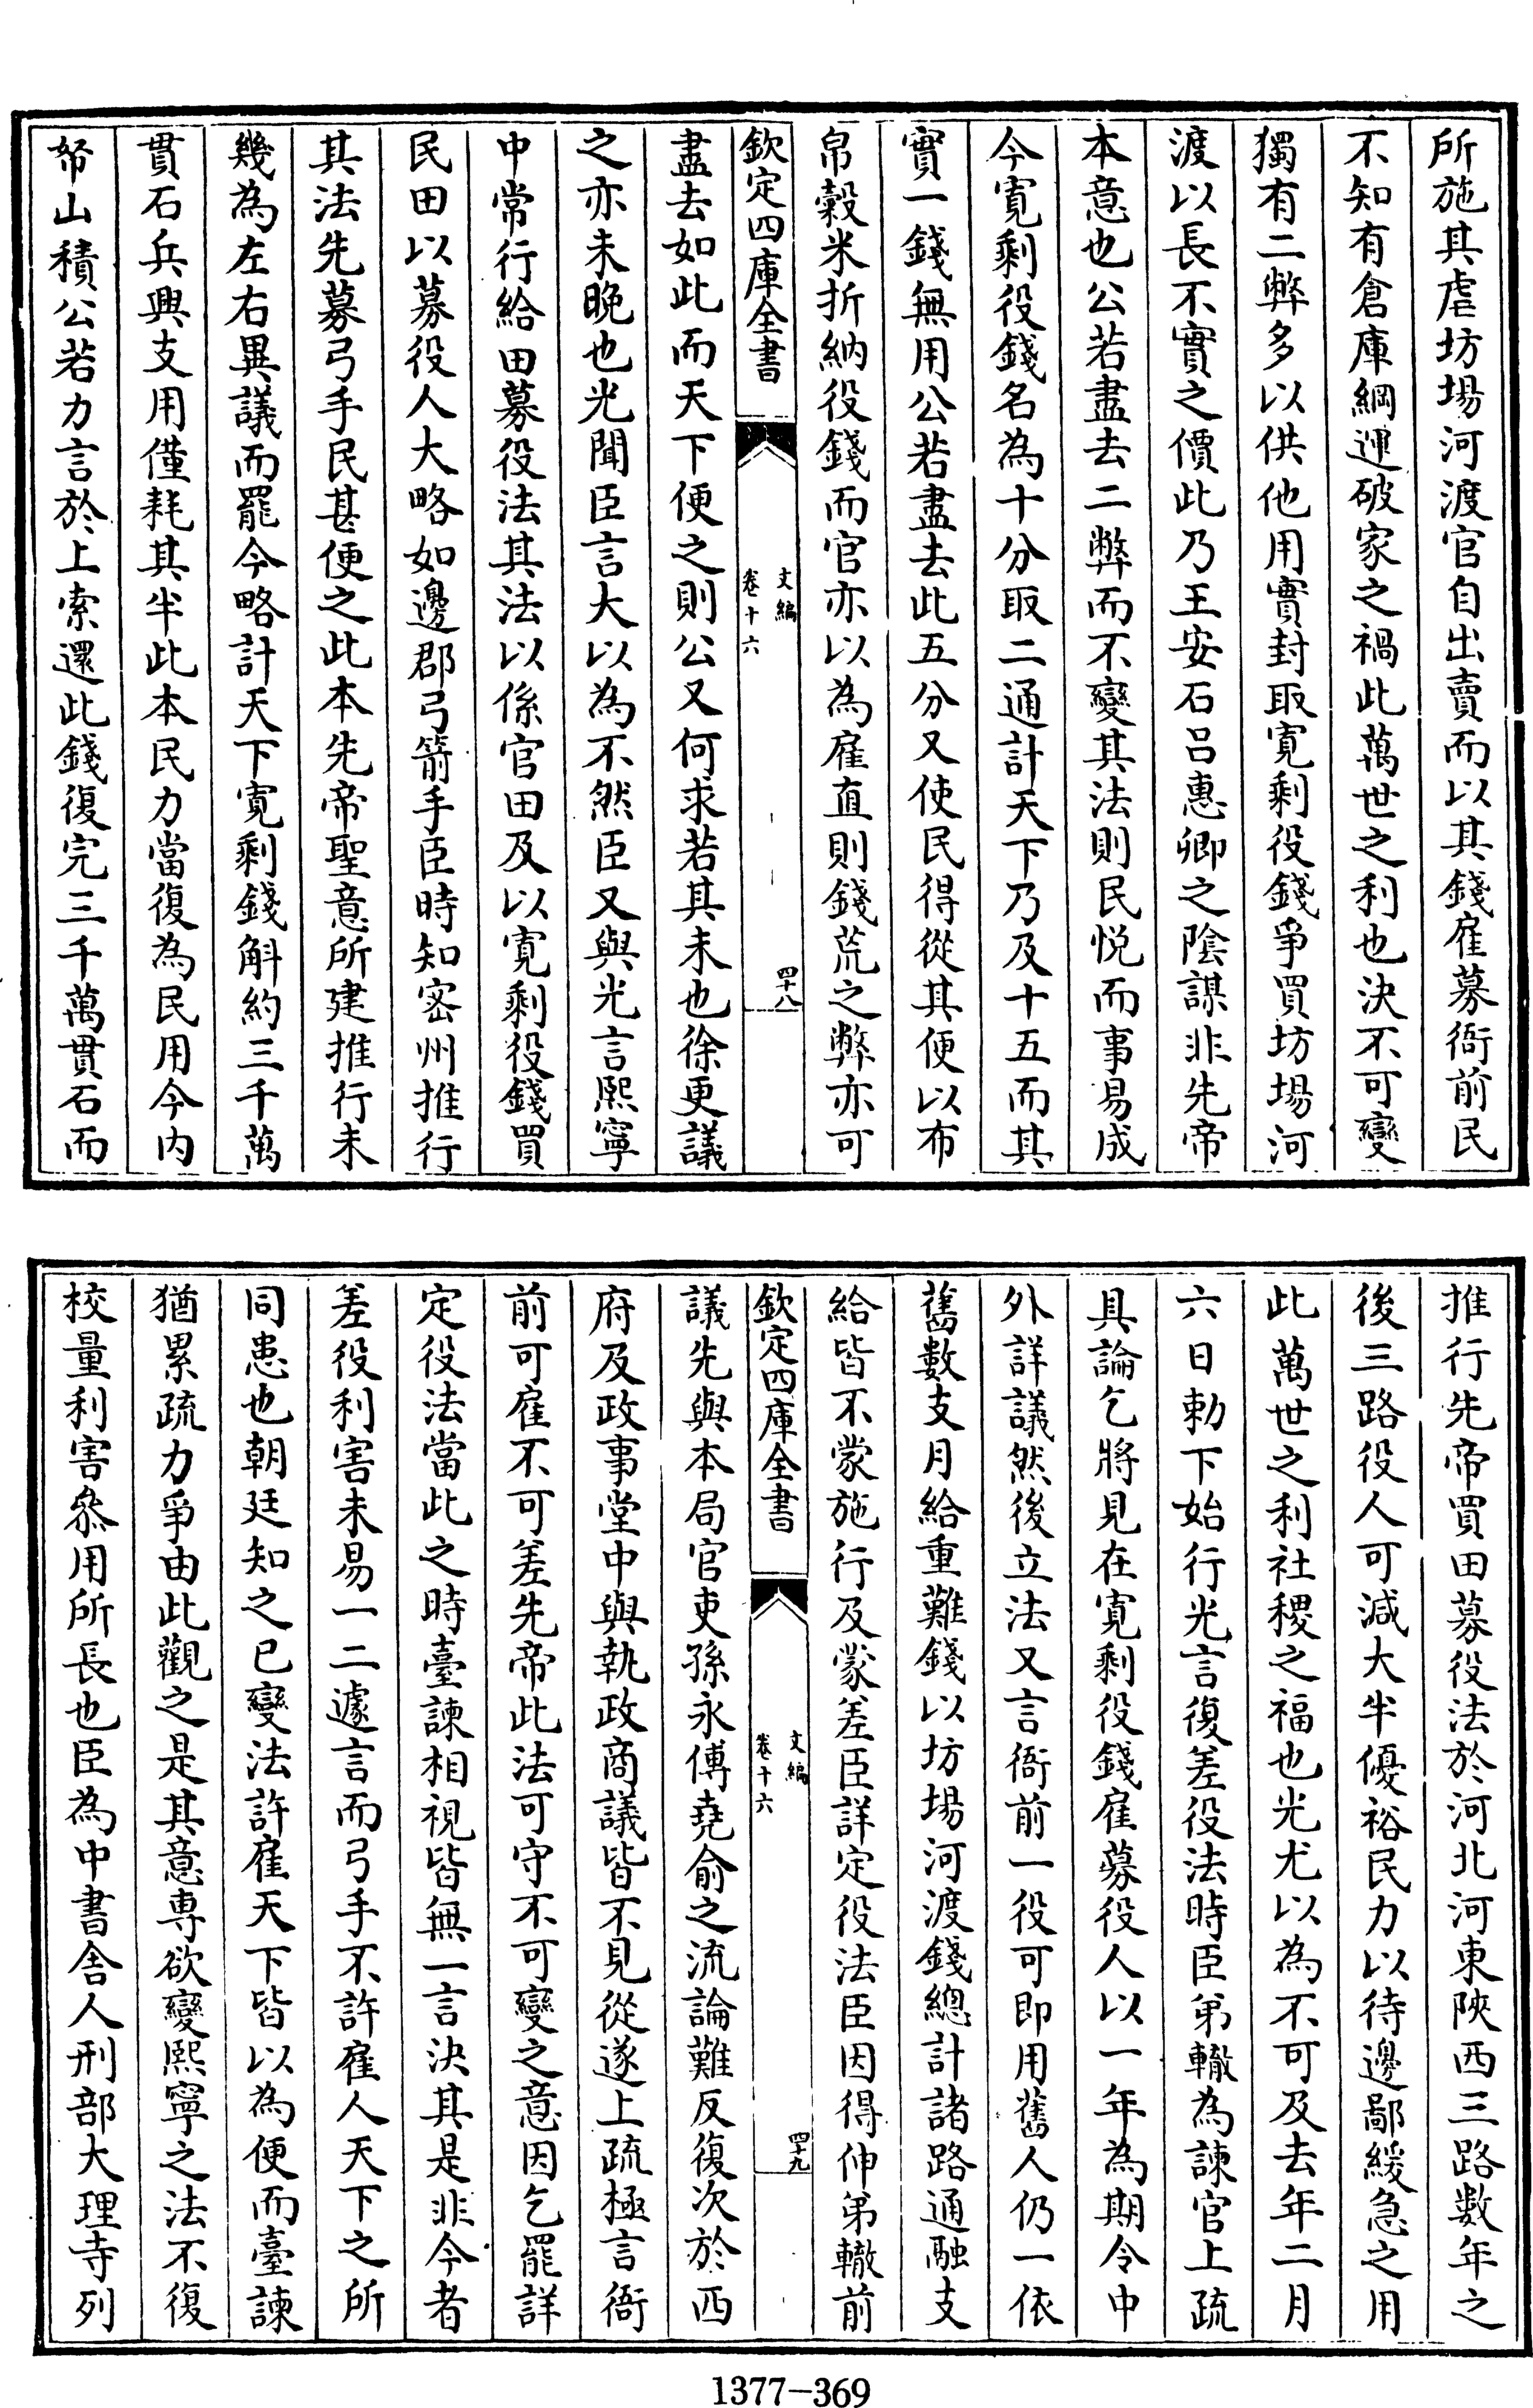 所施其虐坊場河渡官自出賣而以其錢雇募衙前民
不知有倉庫綱運破家之禍此萬世之利也決不可變
獨有二弊多以供他用實封取寛剩役錢爭買坊場河
渡以長不實之價此乃王安石吕惠卿之陰謀非先帝
本意也公若盡去二弊而不變其法則民悦而事易成
今寛剩役錢名為十分取二通計天下乃及十五而其
實一錢無用公若盡去此五分又使民得從其便以布
帛穀米折納役錢而官亦以為雇直則錢荒之弊亦可
欽定四庫全書
文編
卷十六
四十八
盡去如此而天下便之則公又何求若其未也徐更議
之亦未晚也光聞臣言大以為不然臣又與光言熙寧
中常行給田募役法其法以係官田及以寛剩役錢買
民田以募役人大略如邊郡弓箭手臣時知密州推行
其法先募弓手民甚便之此本先帝聖意所建推行未
幾為左右異議而罷今略計天下寛剩錢斛約三千萬
貫石兵興支用僅耗其半此本民力當復為民用今内
帑山積公若力言於上索還此錢復完三千萬貫石而
推行先帝買田募役法於河北河東陜西三路數年之
後三路役人可減大半優裕民力以待邊鄙緩急之用
此萬世之利社稷之福也光尤以為不可及去年二月
六日勅下始行光言復差役法時臣弟轍為諫官上疏
具論乞將見在寛剩役錢雇募役人以一年為期令中
外詳議然後立法又言衙前一役可即用舊人仍一依
舊數支月給重難錢以坊場河渡錢總計諸路通融支
給皆不蒙施行及蒙差臣詳定役法臣因得伸弟轍前
欽定四庫全書
文編
卷十六
四十九
議先與本局官吏孫永傅堯俞之流論難反復次於西
府及政事堂中與執政商議皆不見從遂上疏極言衙
前可雇不可差先帝此法可守不可變之意因乞罷詳
定役法當此之時臺諫相視皆無一言決其是非今者
差役利害未易一二遽言而弓手不許雇人天下之所
同患也朝廷知之已變法許雇天下皆以為便而臺諫
猶累疏力爭由此觀之是其意專欲變熙寧之法不復
校量利害叅用所長也臣為中書舍人刑部大理寺列
1377-369